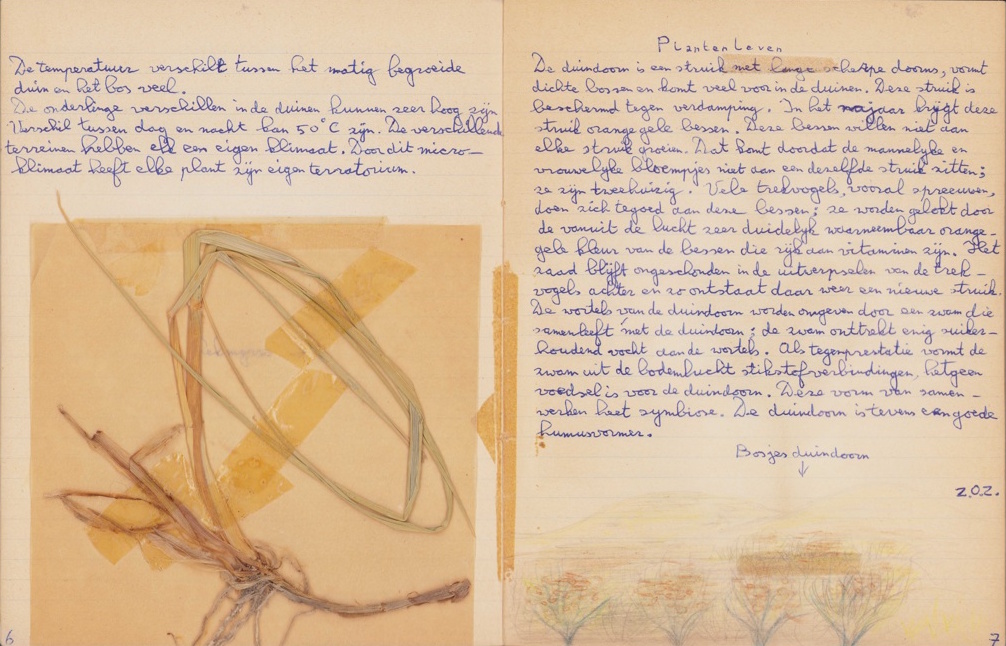 De temperatuur verschilt tussen het matig begroeide
duin en het bos veel.
De onderlinge verschillen in de duinen kunnen zeer hoog zijn
Verschil tussen dag en nacht kan 50°C zijn. De verschillende
terreinen hebben elk een eigen klimaat. Door dit micro-
klimaat heeft elke plant zijn eigen terratorium.
6
Plantenleven
De duindoorn is een struik met lange scherpe doorns, vormt
dichte bossen en komt veel voor in de duinen. Deze struik is
beschermd tegen verdamping. In het najaar krijgt deze
struik orangegele bessen. Deze bessen willen niet aan
elke struik groeien. Dat komt doordat de mannelijke en
vrouwelijke bloempjes niet aan eenzelfde struik zitten;
ze zijn tweehuizig. Vele trekvogels, vooral spreeuwen,
doen zich tegoed aan deze bessen; ze worden gelokt door
de vanuit de lucht zeer duidelijk waarneembaar orange-
gele kleur van de bessen die rijk aan vitaminen zijn. Het
zaad blijft ongeschonden in de uitwerpselen van de trek-
vogels achter en zo ontstaat daar weer een nieuwe struik.
De wortels van de duindoorn worden omgeven door een zwam die
samenleeft met de duindoorn; de zwam onttrekt enig suiker-
houdend vocht aan de wortels. Als tegenprestatie vormt de
zwam uit de bodemlucht stikstofverbindingen, hetgeen
voedsel is voor de duindoorn. Deze vorm van samen-
werken heet symbiose. De duindoorn is tevens een goede
humusvormer.
Bosjes duindoorn
z.o.z.
7